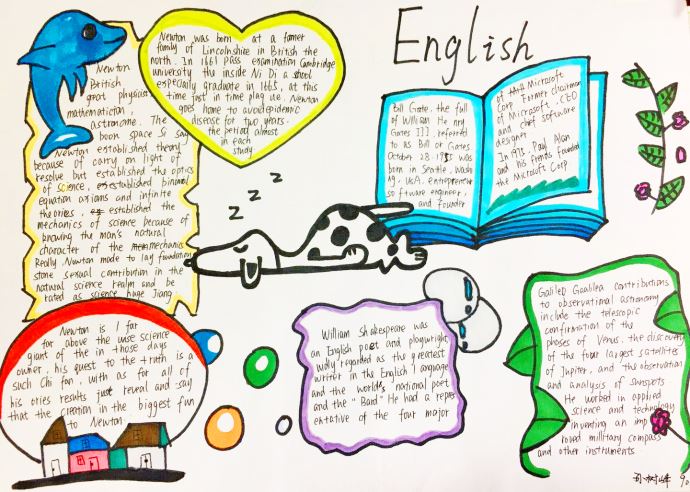 English
Newton
British
great physicist
mathematician,
astronome. The
boon space Si say
Newton established theory
because of carry on light of
resolve but established the optics
of science, established binomial
equation axioms and infinite
theories, established the
mechanics of science because of
knowing the man's natural
character of the mechanics
Really Newton made to lay foundation
stone sexual contribution in the
natural science realm and be
rated as science huge Jiang.
Newton was born at a famer
family of Lincolnshire in British the
north. In 1661 pass examination Cambridge
university the inside Ni Di a school
especially graduate in 1665, at this
time just in time plag ue. Newton
goes home to avoid epidemic
disease for two years.
the period almost
in each
study
Bill Gate. the full
of William He nry
Gates III. referred
to as Bill or Gates.
October 28. 1955 was
born in Seattle, Wash
USA. entrepreneur
so ftware engineer,
and founder
of Microsoft
Corp Former chairman
of Microsoft. CEO
and chief software
designer.
In 1975. Paul Alan
and his friends founded
the Microsoft Corp
Z Z Z
Newton is I far
far above the use science
giant of the in those days
owner, his quest to the truth is a
such Chi fan, with as for all of
his ories results just reveal and say
that the creation in the biggest fun
to Newton
William Shakespeare was
an English poet and playwright,
widly regarded as the greatest
writer in the English language
and the world's national poet
and the "Bard" He had a repre
entative of the four major
Galileo Gaalilea contributions
to observational astronomy
include the telescopic
confirmation of the
phoses of Venus. the discovery
of the four largest satellites
of Jupiter, and the observation
and analysis of sunspots.
He worked in applied
science and technology
inventing an imp
roved millitary compass
and other instruments